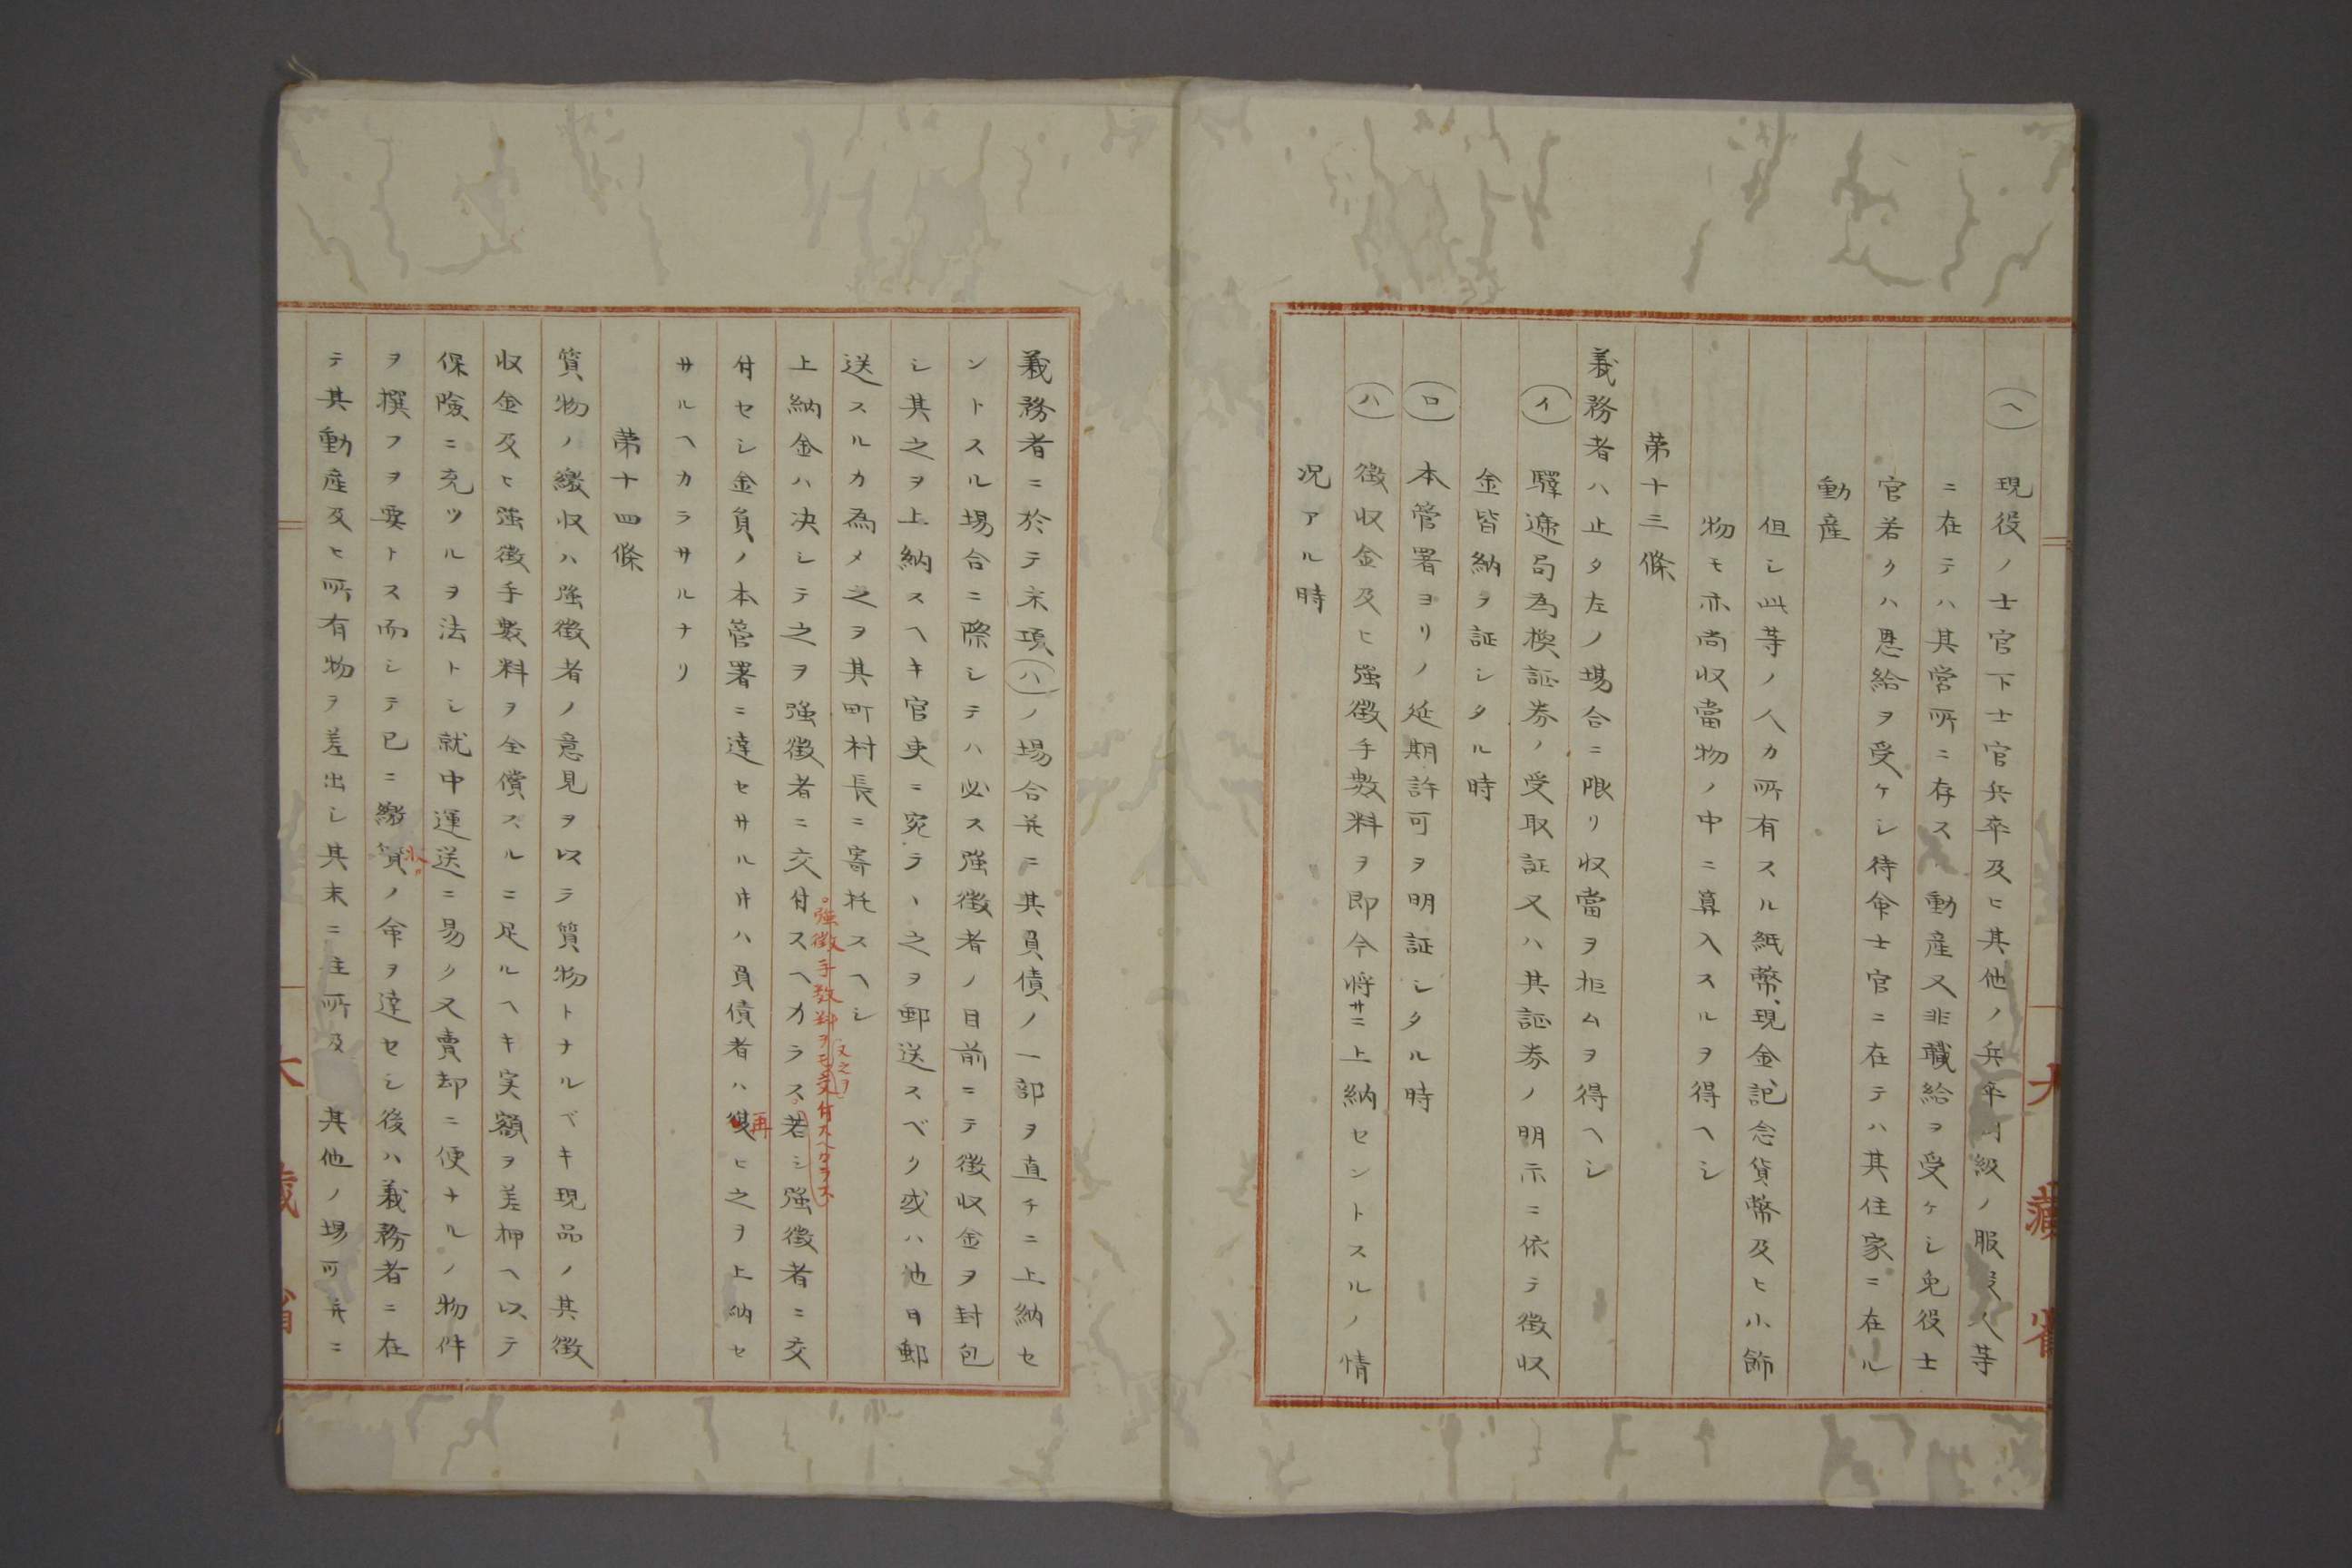 (ヘ) 現役ノ士官下士官兵卒及ヒ其他ノ兵卒同級ノ服役人等
ニ在テハ其営所ニ存スル動産又非職給ヲ受ケシ免役士
官若クハ恩給ヲ受ケシ待命士官ニ在テハ其住家ニ在ル
動産
但シ此等ノ人カ所有スル紙幣、現金、記念貨幣及ヒ小飾
物モ亦尚収當物ノ中ニ算入スルヲ得ヘシ
第十三條
義務者ハ止タ左ノ場合ニ限リ収當ヲ拒ムヲ得ヘシ
(イ) 驛逓局為換証券ノ受取証又ハ其証券ノ明示ニ依テ徴収
金皆納ヲ証シタル時
(ロ) 本管署ヨリノ延期許可ヲ明証シタル時
(ハ) 徴収金及ヒ強徴手數料ヲ即今将サニ上納セントスルノ情
況アル時
大藏省
義務者ニ於テ末項(ハ)ノ場合并ニ其負債ノ一部ヲ直チニ上納セ
ントスル場合ニ際シテハ必ス強徴者ノ目前ニテ徴収金ヲ封包
シ其之ヲ上納スヘキ官吏ニ宛テヽ之ヲ郵送スベク或ハ他日郵
送スルカ為メ之ヲ其町村長ニ寄托スヘシ
又之ヲ
強徴手数料ヲモ交付スヘカラス
上納金ハ决シテ之ヲ強徴者ニ交付スヘカラス若シ強徴者ニ交
付セシ金負ノ本管署ニ達セサル片ハ負債者ハ再ヒ之ヲ上納セ
サルヘカラサルナリ
第十四條
質物ノ繳収ハ強徴者ノ意見ヲ以テ質物トナルベキ現品ノ其徴
収金及ヒ強徴手數料ヲ全償スルニ足ルヘキ実額ヲ差押ヘ以テ
保險ニ充ツルヲ法トシ就中運送ニ易ク又賣却ニ便ナルノ物件
ヲ撰フヲ要トス而シテ已ニ繳質ノ命ヲ達セシ後ハ義務者ニ在
テ其動産及ヒ所有物ヲ差出シ其末ニ住所及 其他ノ場所并ニ
大藏省